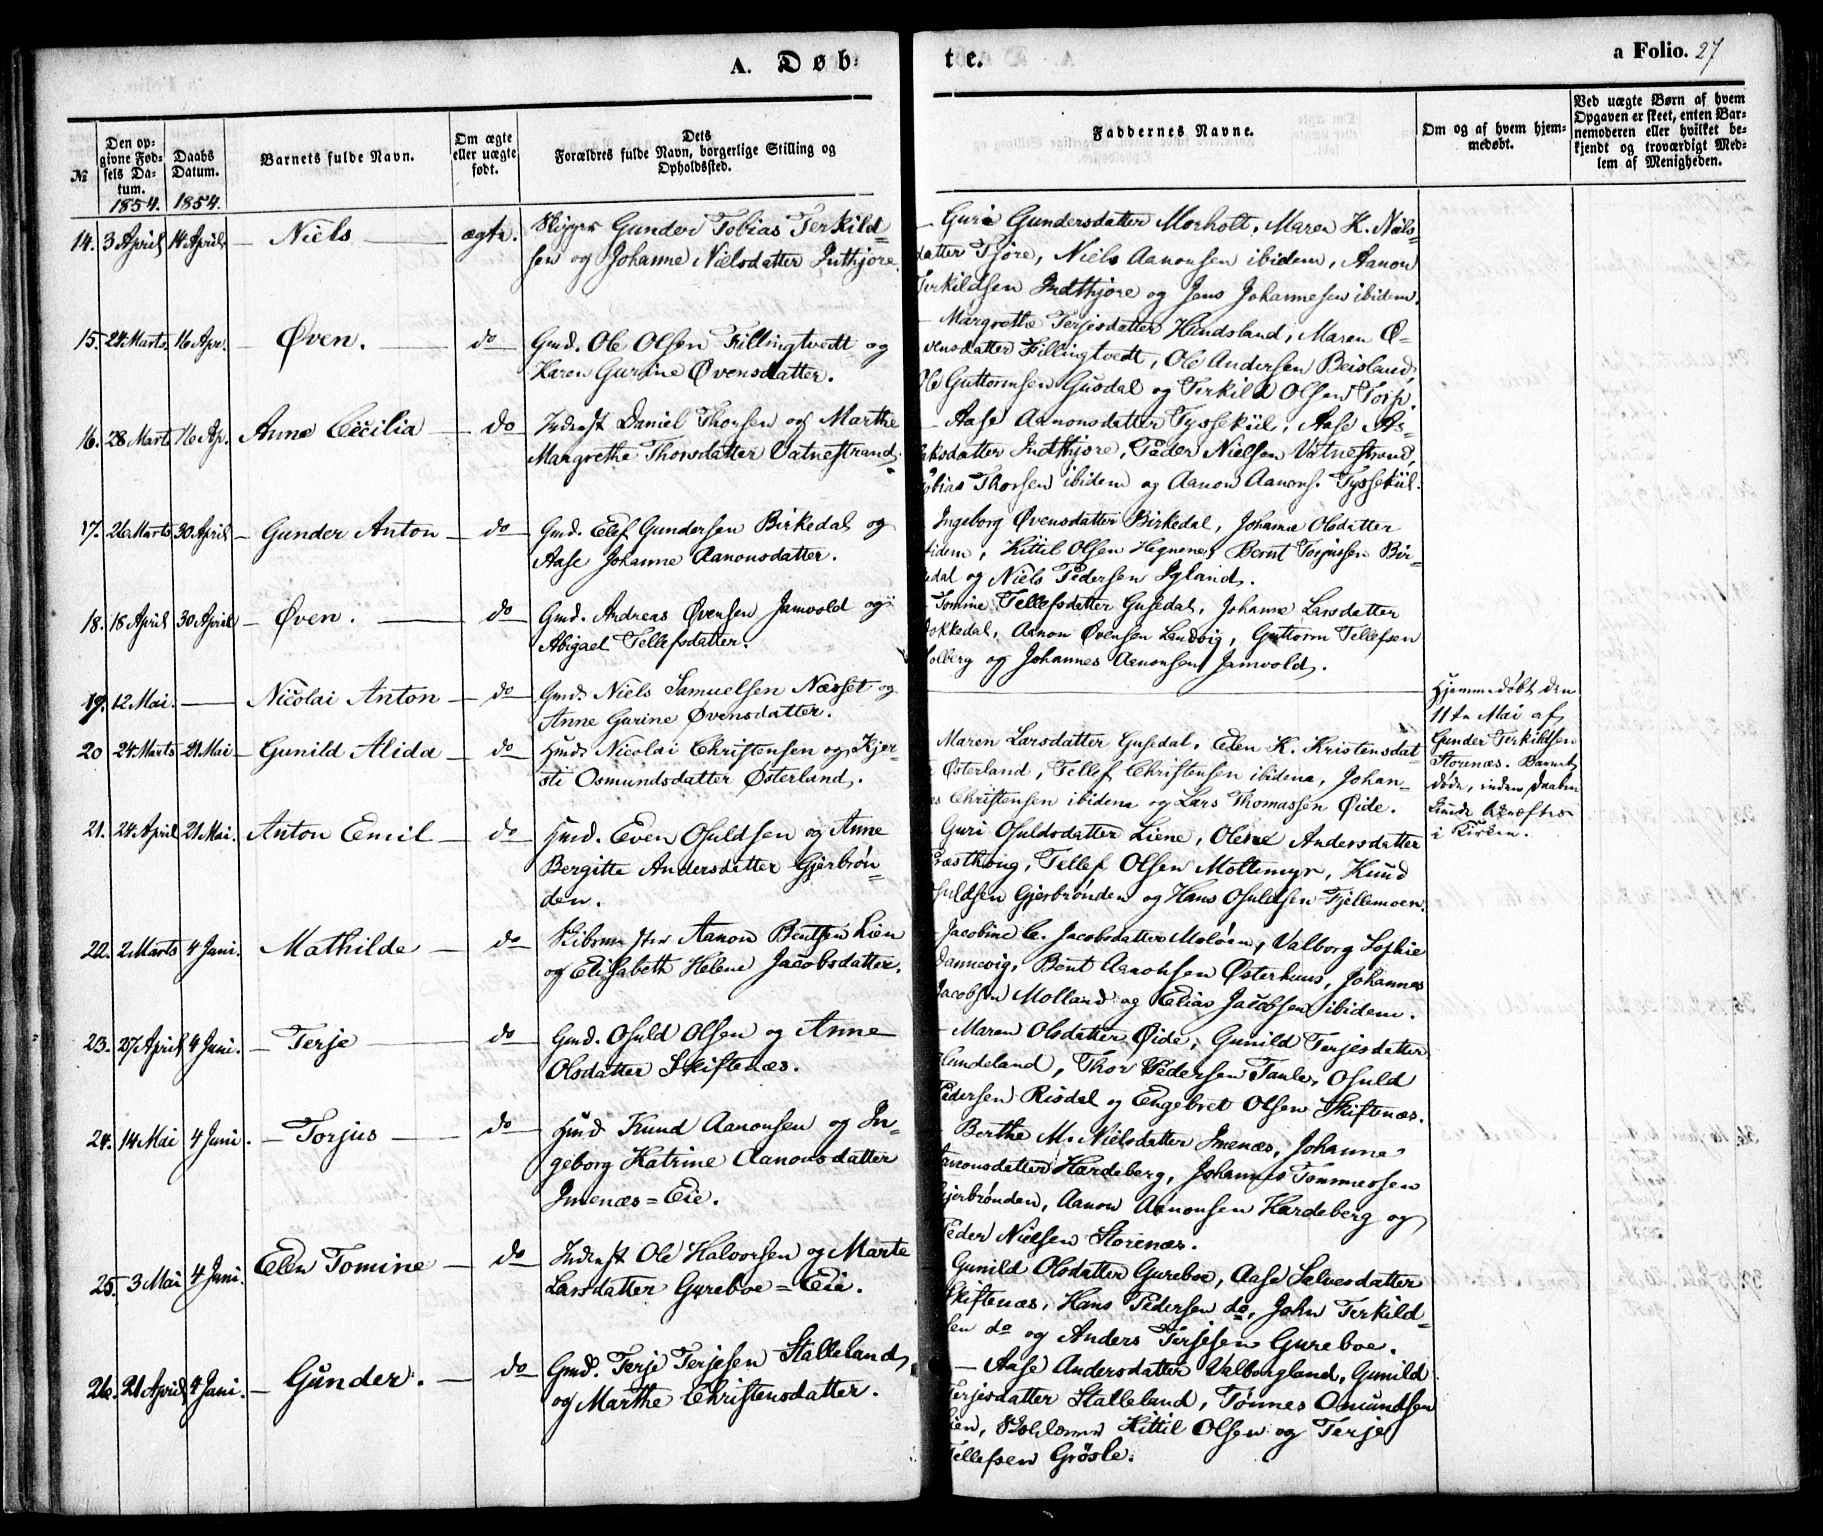 A. Døb-
te.
a Folio. 27
№
Den op-
givne Fød-
sels Da-
tum.
1854.
Daabs
Datum.
1854.
Barnets fulde Navn.
Om ægte
eller uægte
født.
Dets
Forældres fulde Navn, borgerlige Stilling og
Opholdssted.
Faddernes Navne.
Om og af hvem hjem-
medøbt.
Ved uægte Børn af hvem
Opgaven er skeet, enten Bar-
nemoderen eller hvilket be-
kjendt og troværdigt Med-
lem af Menigheden.
14. 3 April 14 April – Niels – ægte. Skipper Gunder Tobias Terkild-
sen og Johanne Nielsdatter Indtjore
– Guri Gundersdatter Morholt, Maren K. Niels-
datter Tjore, Niels Aanonsen ibidem, Aanon
Terkildsen Indthjore og Jens Johannesen ibidem.
15. 24 Marts 16 Apr. – Øven. – do Gmd. Ole Olsen Fillingtvedt og
Karen Gurine Øvensdatter.
– Margrethe Terjesdatter Hundsland, Maren Ø-
vensdatter Fillingtvedt, Ole Andersen Beisland,
Ole Guttormsen Gusdal og Terkild Olsen Torp.
16. 28 Marts 16 Ap. Anne Cecilia – do Inderst Daniel Thorsen og Marthe
Margrethe Thorsdatter Vatnestrand.
– Aase Aanonsdatter Tyssekiil, Aase As-
laksdatter Indthjore, Peder Nielsen Vatnestrand,
Tobias Thorsen ibidem og Aanon Aanons. Tyssekiil.
17. 26 Marts 30 April – Gunder Anton – do Gmd. Elef Gundersen Birkedal og
Aase Johanne Aanonsdatter.
Ingeborg Øvensdatter Birkedal, Johanne Olsdatter
ibidem, Kittil Olsen Hegnene, Bernt Torjussen Bir-
kedal og Niels Pedersen Igland.
18. 18 April 30 April – Øven. – do Gmd. Andreas Øvensen Jamvold og
Abigael Tellefsdatter.
Tomine Tellefsdatter Gusedal, Johanne Larsdatter
Dokkedal, Aanon Øvensen Landvig, Guttorm Tellefsen
Holberg og Johannes Aanonsen Jamvold.
19. 12 Mai. – Nicolai Anton – do Gmd. Niels Samuelsen Næsset og
Anne Gurine Øvensdatter.
Hjemmedøbt den
11te Mai af
Gunder Terkildsen
Storenæs. Barnet
døde, inden Daaben
kunde bekræftes
i Kirken.
20 24 Marts 21 Mai – Gunild Alida – do Hmd. Nicolai Christensen og Kjer-
sti Osmundsdatter Østerland.
Maren Larsdatter Gusedal, Eden K. Kristensdat-
Østerland, Tellef Christensen ibidem, Johan-
nes Christensen ibidem og Lars Thomassen Øide.
21. 24 April 21 Mai. Anton Emil – do Hmd. Even Osuldsen og Anne
Bergitte Andersdatter Gjerbrøn-
den.
Guri Osuldsdatter Liene, Olene Andersdatter
Præsthoug, Tellef Olsen Moltemyr, Knud
Osuldsen Gjerbrønden og Hans Osuldsen Fjellemoen.
22. 2 Marts 4 Juni. Mathilde – do Aanon Bentsen Lien
og Elisabeth Helene Jacobsdatter.
– Jacobine C. Jacobsdatter Moløen, Valborg Sophie
Dannevig, Bent Aanonsen Østerhuus, Johannes
Jacobsen Molland og Elias Jacobsen ibidem.
23. 27 April 4 Juni. – Terje – do Gmd. Osuld Olsen og Anne
Olsdatter Skiftenæs.
– Maren Olsdatter Øide, Gunild Terjesdatter
Hundeland, Thor Pedersen Tanle, Osuld
Pedersen Risdal og Engebret Olsen Skiftenæs.
24. 14 Mai 4 Juni. – Torjus – do Hmd Knud Aanonsen og In-
geborg Katrine Aanonsdatter
Imenæs=Eie.
Berthe M. Nielsdatter Imenæs, Johanne
Aanonsdatter Hardeberg, Johannes Tommessen
Gjerbrønden, Aanon Aanonsen Hardeberg og
Peder Nielsen Storenæs.
25. 3 Mai 4 Juni. Elen Tomine – do Inderst Ole Halvorsen og Marte
Larsdatter Gureboe=Eie.
Gunild Olsdatter Gureboe, Aase Salvesdatter
Skiftenæs, Hans Pedersen do, John Terkild-
sen do og Anders Terjesen Gureboe.
26. 21 April 4 Juni. – Gunder. – do Gmd. Terje Terjesen Stalleland,
og Marthe Christensdatter.
– Aase Andersdatter Valborgland, Gunild
Terjesdatter Stalleland, Tønnes Omundsen
Lien, Kittil Olsen og Terje
Tellefsen Grøsle.